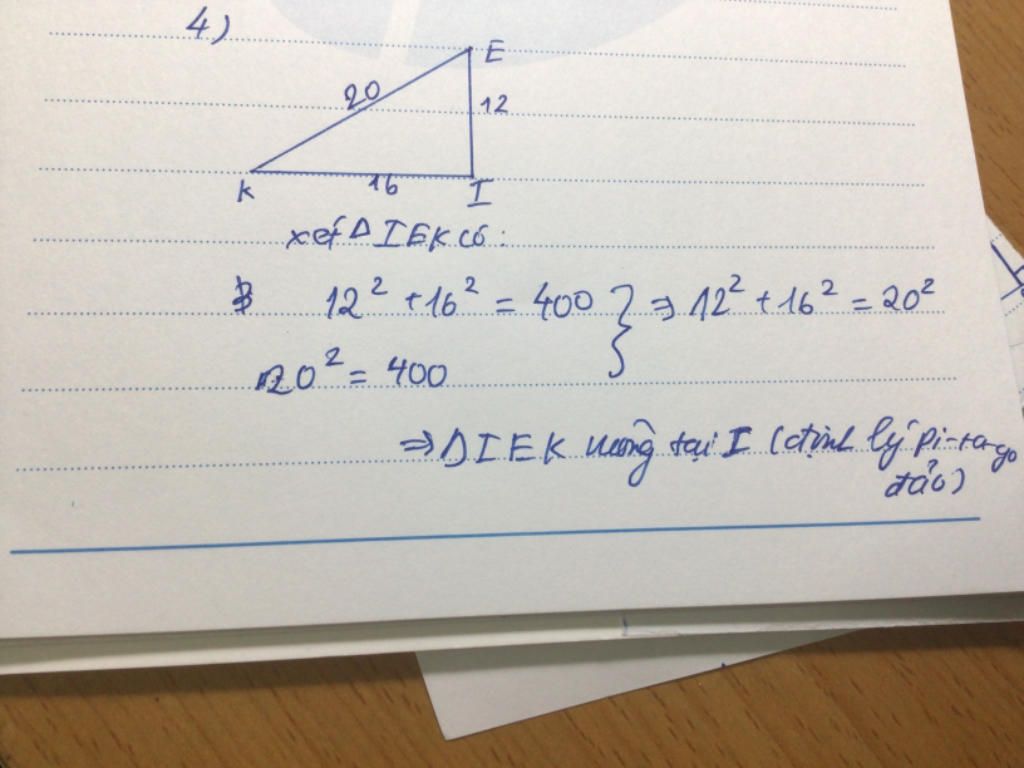 4)
E
20
12
K
16
I
xét Δ IEK có:
12² + 16² = 400 } ⇒ 12² + 16² = 20²
20² = 400
⇒ Δ IEK vuông tại I (định lý Pi-ta-go
đảo)